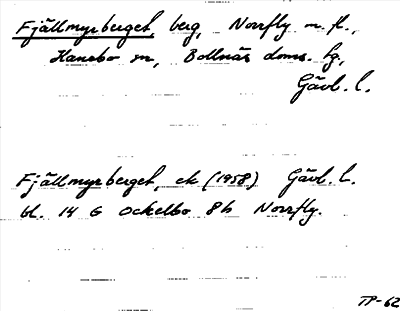 Fjällmyrberget, berg, Norrfly m. fl.,
Hanebo sn, Bollnäs doms. fg,
Gävl. l.
Fjällmyrberget, ek (1958) Gävl. l.
bl. 14 G Ockelbo 8h Norrfly.
TP-62